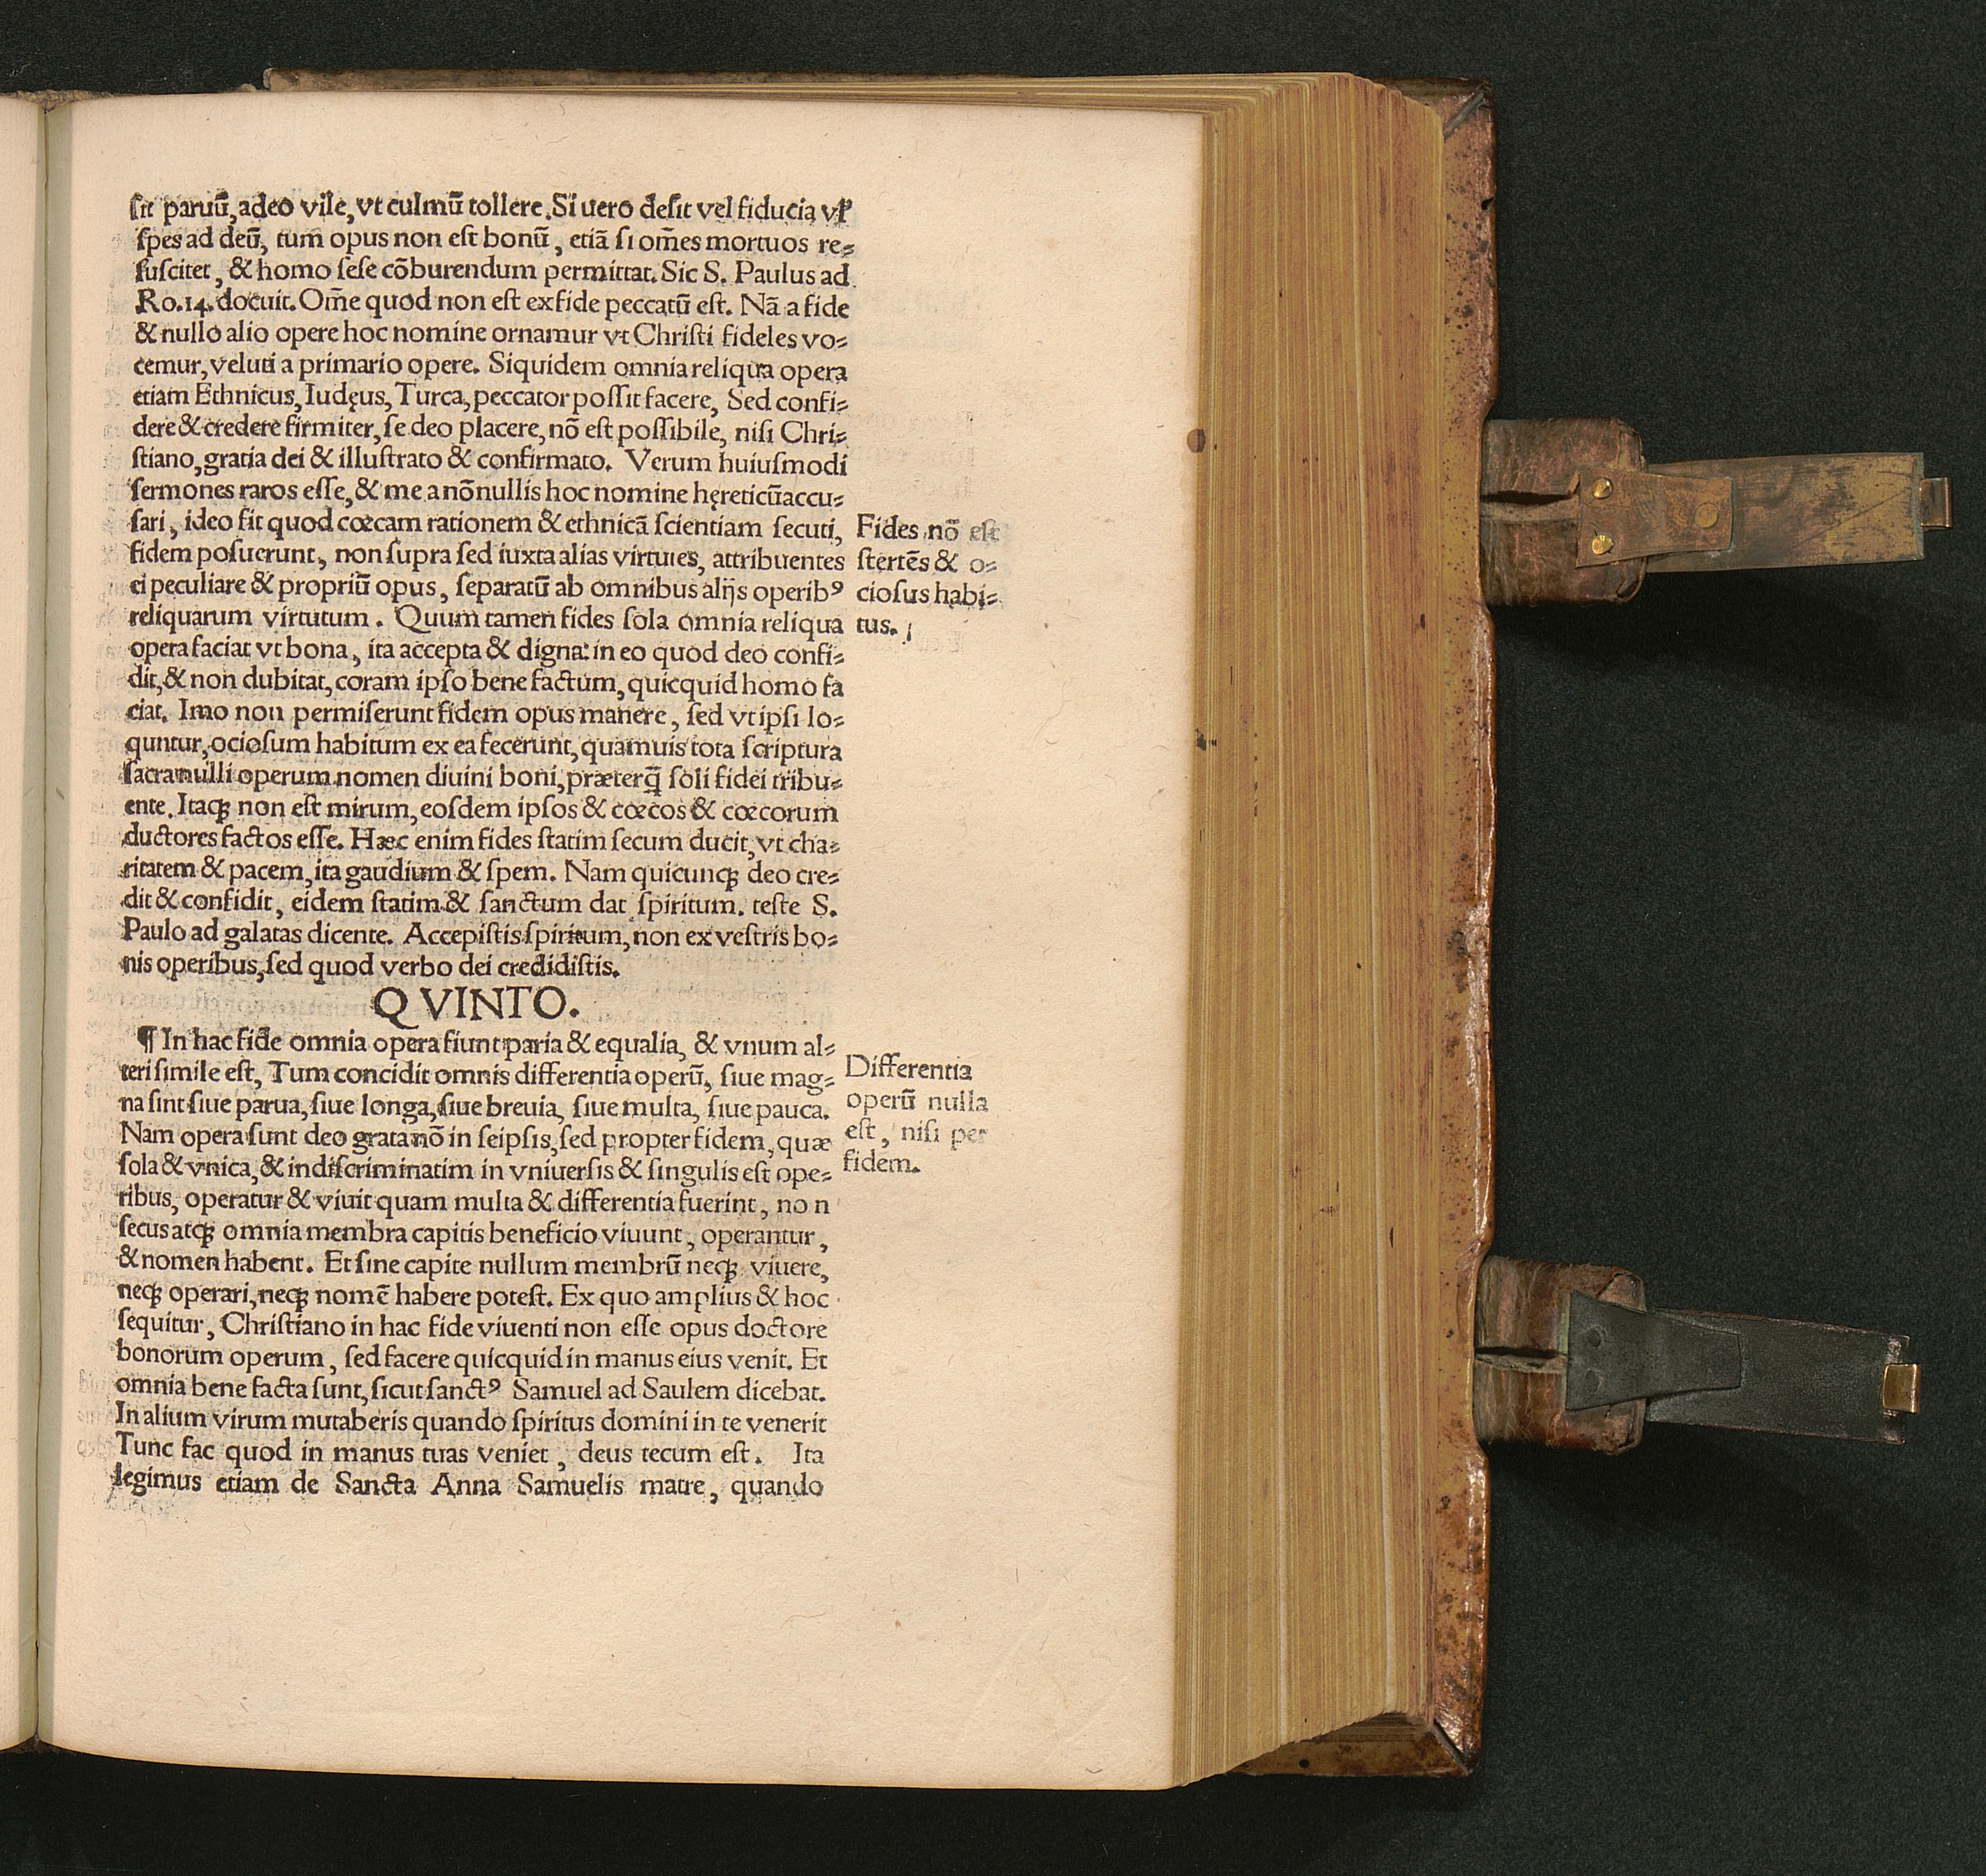 ſit paruū, adeo vile, vt culmū tollere. Si uero deſit vel fiducia vł
ſpes ad deū, tum opus non eſt bonū, etiā ſi om̄es mortuos re⸗
ſuſcitet, & homo ſeſe cōburendum permittat. Sic S. Paulus ad
Ro.14. docuit. Om̄e quod non eſt ex fide peccatū eſt. Nā a fide
& nullo alio opere hoc nomine ornamur vt Chriſti fideles vo⸗
cemur, veluti a primario opere. Siquidem omnia reliqua opera
etiam Ethnicus, Iudęus, Turca, peccator poſſit facere, Sed confi⸗
dere & credere firmiter, ſe deo placere, nō eſt poſſibile, niſi Chri⸗
ſtiano, gratia dei & illuſtrato & confirmato. Verum huiuſmodi
ſermones raros eſſe, & me a nōnullis hoc nomine hęreticū accu⸗
ſari, ideo fit quod cœcam rationem & ethnicā ſcientiam ſecuti,
fidem poſuerunt, non ſupra ſed iuxta alias virtutes, attribuentes
ei peculiare & propriū opus, ſeparatū ab omnibus alijs operibꝰ
reliquarum virtutum. Quum tamen fides ſola omnia reliqua
opera faciat vt bona, ita accepta & digna: in eo quod deo confi⸗
dit, & non dubitat, coram ipſo bene factum, quicquid homo fa
ciat. Imo non permiſerunt fidem opus manere, ſed vt ipſi lo⸗
quntur, ocioſum habitum ex ea fecerunt, quamuis tota ſcriptura
ſacra nulli operum nomen diuini boni, præterq̄ ſoli fidei tribu⸗
ente. Itaqꝫ non eſt mirum, eoſdem ipſos & cœcos & cœcorum
ductores factos eſſe. Hæc enim fides ſtatim ſecum ducit, vt cha⸗
ritatem & pacem, ita gaudium & ſpem. Nam quicunqꝫ deo cre⸗
dit & confidit, eidem ſtatim & ſanctum dat ſpiritum. teſte S.
Paulo ad galatas dicente. Accepiſtis ſpiritum, non ex veſtris bo⸗
nis operibus, ſed quod verbo dei credidiſtis.
Fides nō eſt
ſtertēs & o⸗
cioſus habi⸗
tus.
QVINTO.
¶ In hac fide omnia opera fiunt paria & equalia, & vnum al⸗
teri ſimile eſt, Tum concidit omnis differentia operū, ſiue mag⸗
na ſint ſiue parua, ſiue longa, ſiue breuia, ſiue multa, ſiue pauca.
Nam opera ſunt deo grata nō in ſeipſis, ſed propter fidem, quæ
ſola & vnica, & indiſcriminatim in vniuerſis & ſingulis eſt ope⸗
ribus, operatur & viuit quam multa & differentia fuerint, non
ſecus atqꝫ omnia membra capitis beneficio viuunt, operantur,
& nomen habent. Et ſine capite nullum membrū neqꝫ viuere,
neqꝫ operari, neqꝫ nomē habere poteſt. Ex quo amplius & hoc
ſequitur, Chriſtiano in hac fide viuenti non eſſe opus doctore
bonorum operum, ſed facere quicquid in manus eius venit. Et
omnia bene facta ſunt, ſicut ſanctꝰ Samuel ad Saulem dicebat.
In alium virum mutaberis quando ſpiritus domini in te venerit
Tunc fac quod in manus tuas veniet, deus tecum eſt. Ita
legimus etiam de Sancta Anna Samuelis matre, quando
Differentia
operū nulla
eſt, niſi per
fidem.